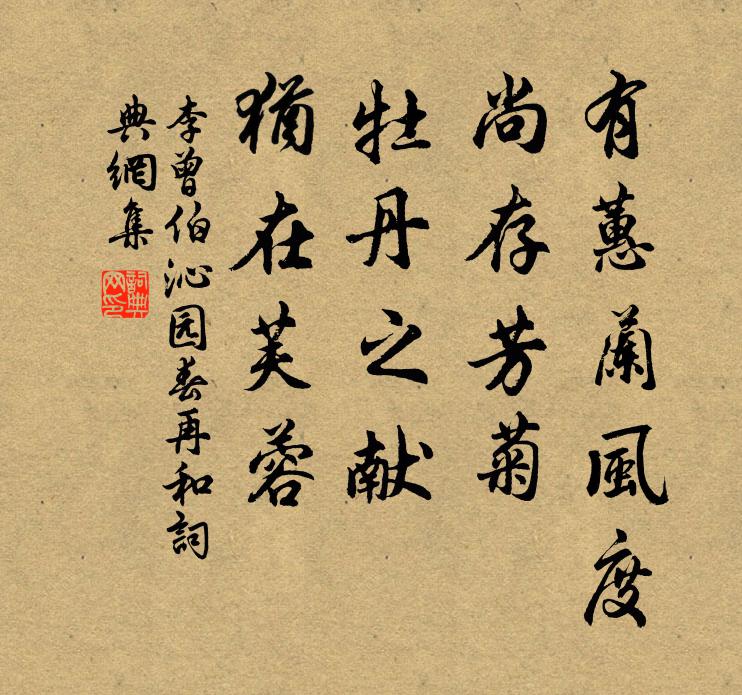 有蕙蘭風度
尚存芳菊
牡丹之献
猶在芙蓉
李曾伯沁园春再和詞
典網集
詞典网印